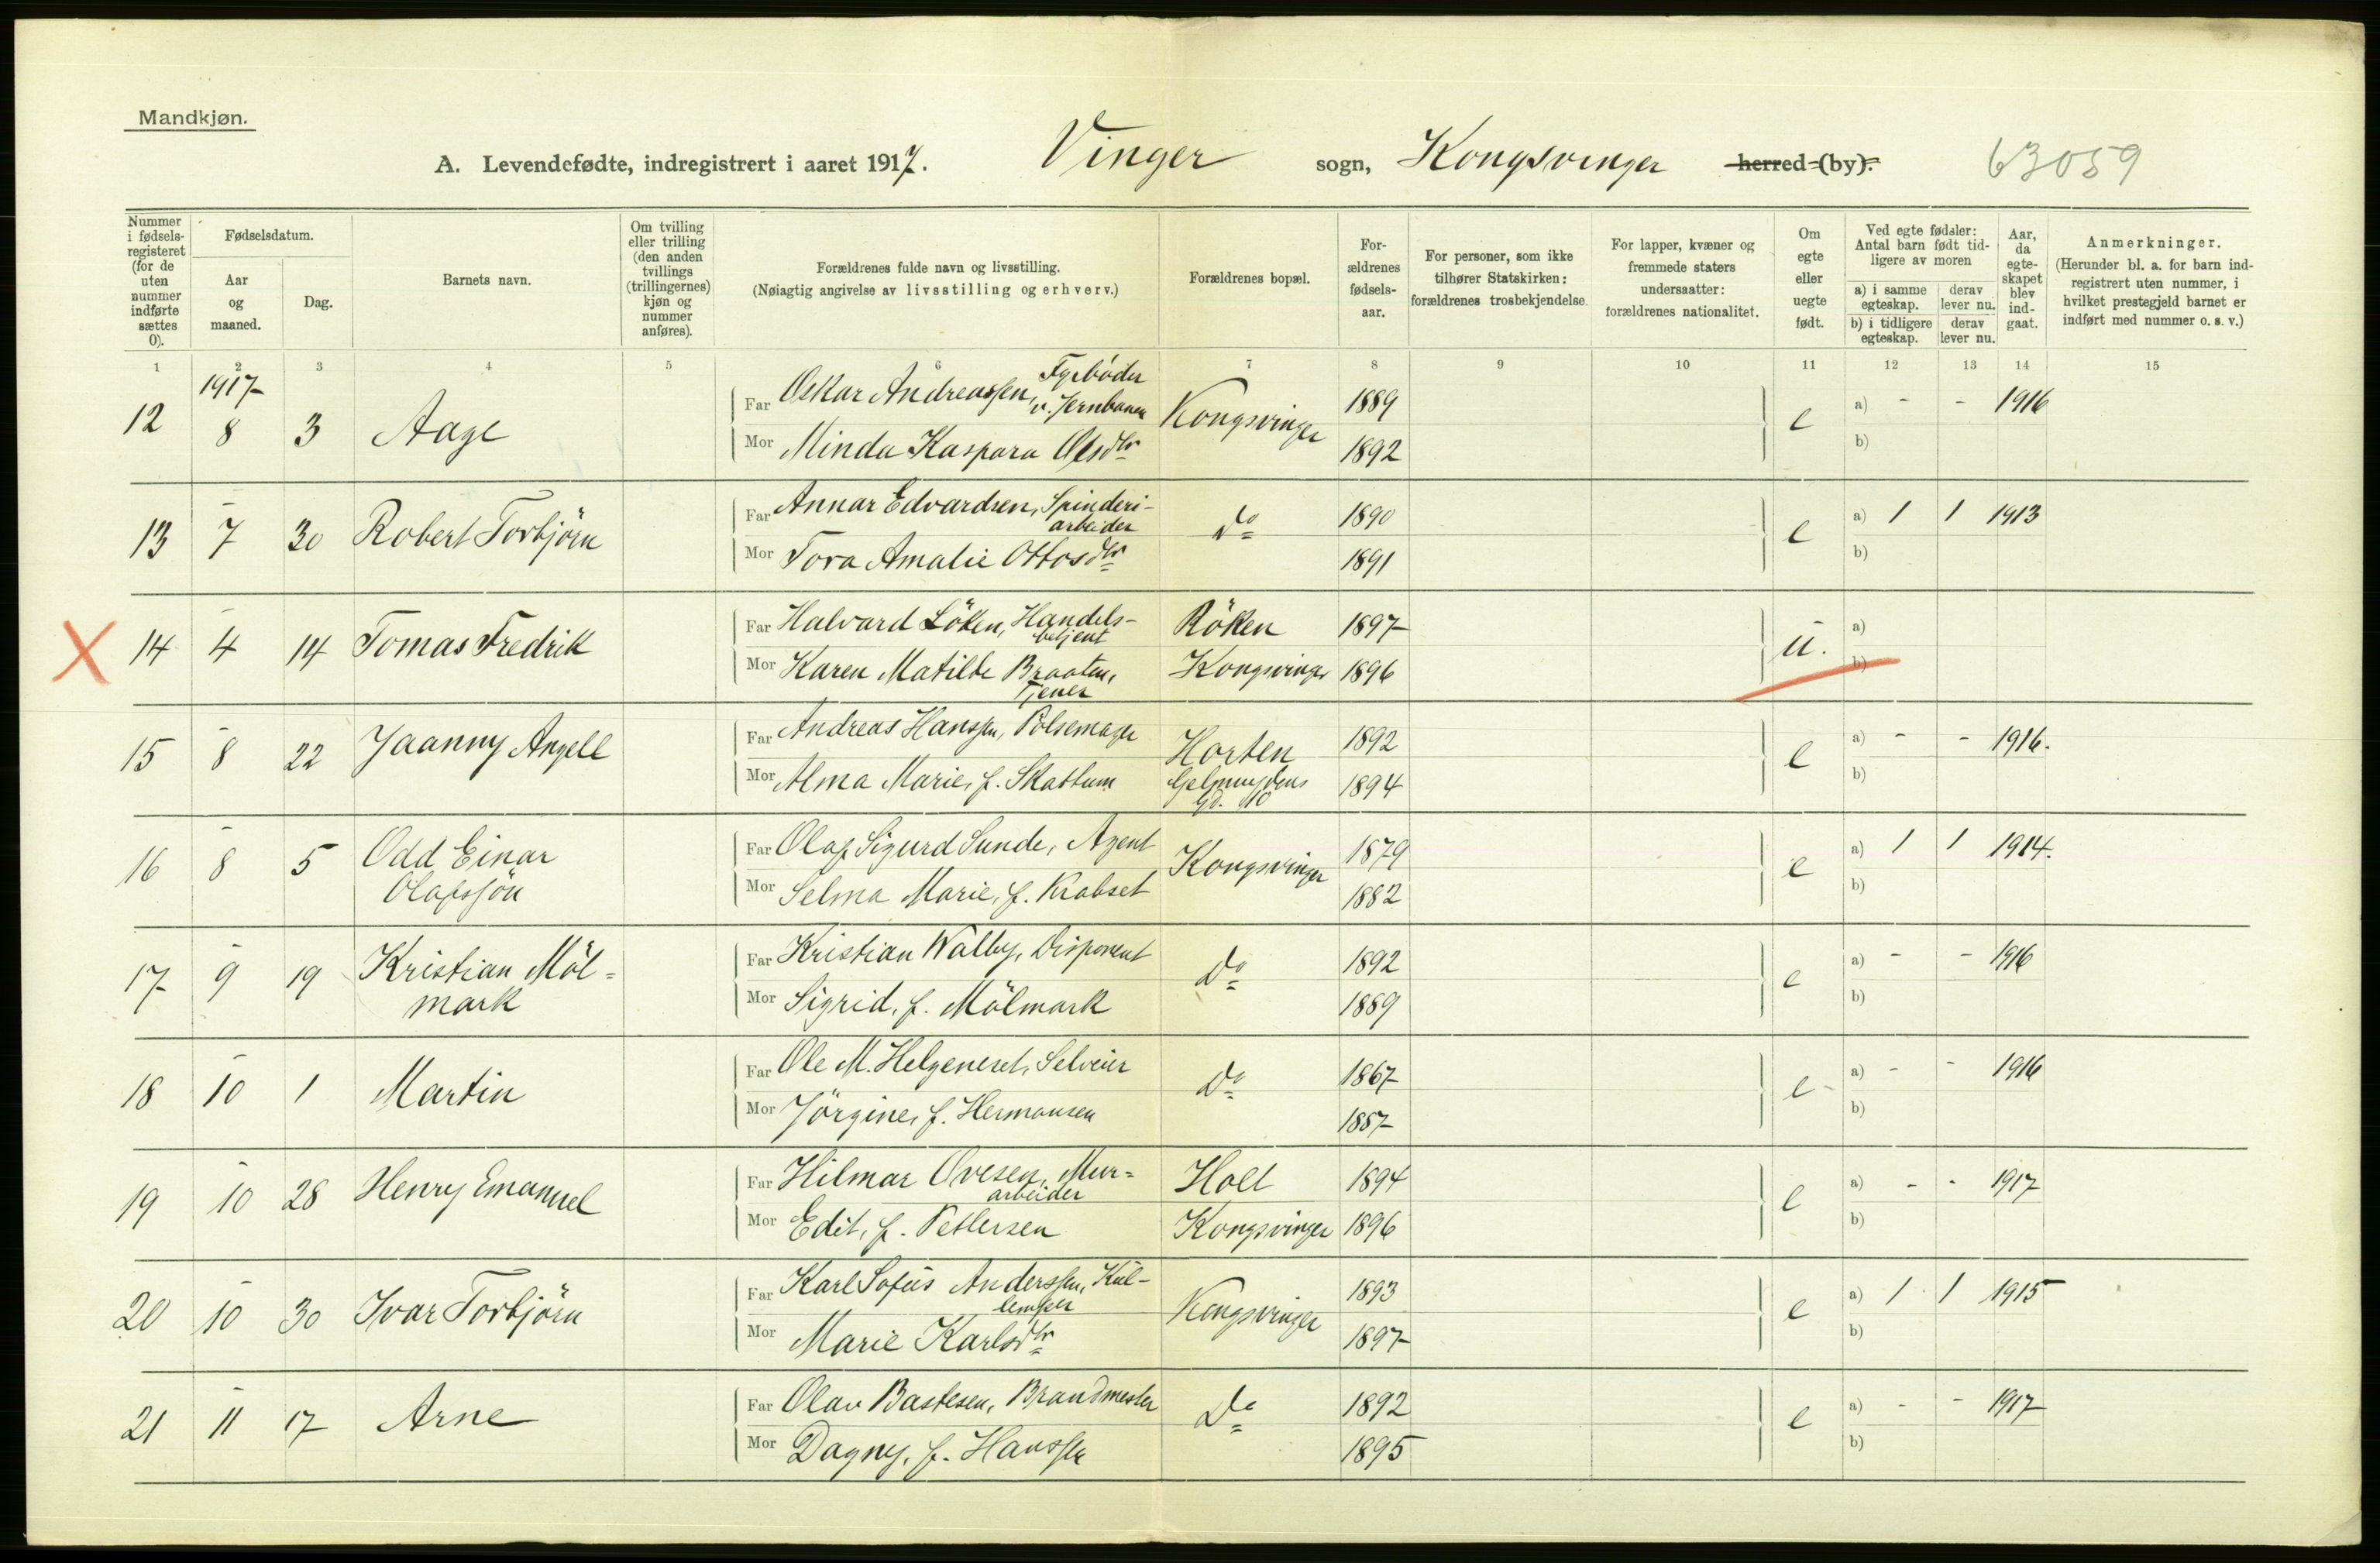 Mandkjøn.
A. Levendefødte, indregistrert i aaret 1917. Vinger sogn, Kongsvinger herred (by). 63059
Nummer i fødsels-registeret (for de uten nummer indførte sættes 0).
Fødselsdatum.
Aar og maaned.
Dag.
Barnets navn.
Om tvilling eller trilling (den anden tvillings (trillingernes) kjøn og nummer anføres).
Forældrenes fulde navn og livsstilling.
(Nøiagtig angivelse av livsstilling og erhverv.)
Forældrenes bopæl.
For-ældrenes fødsels-aar.
For personer, som ikke tilhører Statskirken: forældrenes trosbekjendelse.
For lapper, kvæner og fremmede staters undersaatter: forældrenes nationalitet.
Om egte eller uegte født.
Ved egte fødsler: Antal barn født tid-ligere av moren
a) i samme egteskap. derav lever nu.
b) i tidligere egteskap. derav lever nu.
Aar, da egte-skapet blev ind-gaat.
Anmerkninger.
(Herunder bl. a. for barn ind-registrert uten nummer, i hvilket prestegjeld barnet er indført med nummer o. s. v.)
1 2 3 4 5 6 7 8 9 10 11 12 13 14 15
1917
12 8 3 Aage Far Oskar Andreassen, Fyrbøder v. Jernbanen Kongsvinger 1889 e a) - - 1916
Mor Minda Kaspara Olsdtr 1892 b)
13 - 7 30 Robert Torbjörn Far Annar Edvardsen, Spinderi-arbeider Do 1890 e a) 1 1 1913
Mor Tora Amalie Ottosdtr 1891 b)
X 14 - 4 14 Tomas Fredrik Far Halvard Löken, Handels-betjent Röken 1897 u. a)
Mor Karen Matilde Braaten, Tjener Kongsvinger 1896 b)
15 - 8 22 Jaanny Angell Far Andreas Hanssen, Pölsemager Horten 1892 e a) - - 1916.
Mor Alma Marie, f. Skattum Gd. 10 1894 b)
16 - 8 5 Odd Einar Olafssön Far Olaf Sigurd Sunde, Agent Kongsvinger 1879 e a) 1 1 1914.
Mor Selma Marie, f. Krabset 1882 b)
17 - 9 19 Kristian Möl=mark Far Kristian Walby, Disponent Do 1892 e a) - - 1916
Mor Sigrid, f. Mölmark 1889 b)
18 - 10 1 Martin Far Ole M. Helgeneset, Selveier Do 1867 e a) - - 1916
Mor Jörgine, f. Hermansen 1887 b)
19 - 10 28 Henry Emanuel Far Hilmar Ovesen, Mur=arbeider Holt 1894 e a) - - 1917
Mor Edit, f. Pettersen Kongsvinger 1896 b)
20 - 10 30 Ivar Torbjörn Far Karl Sofus Anderssen, Kul-lemper Kongsvinger 1893 e a) 1 1 1915
Mor Marie Karlsdtr 1897 b)
21 - 11 17 Arne Far Olav Bastesen, Brandmester Do 1892 e a) - - 1917
Mor Dagny, f. Hanssen 1895 b)